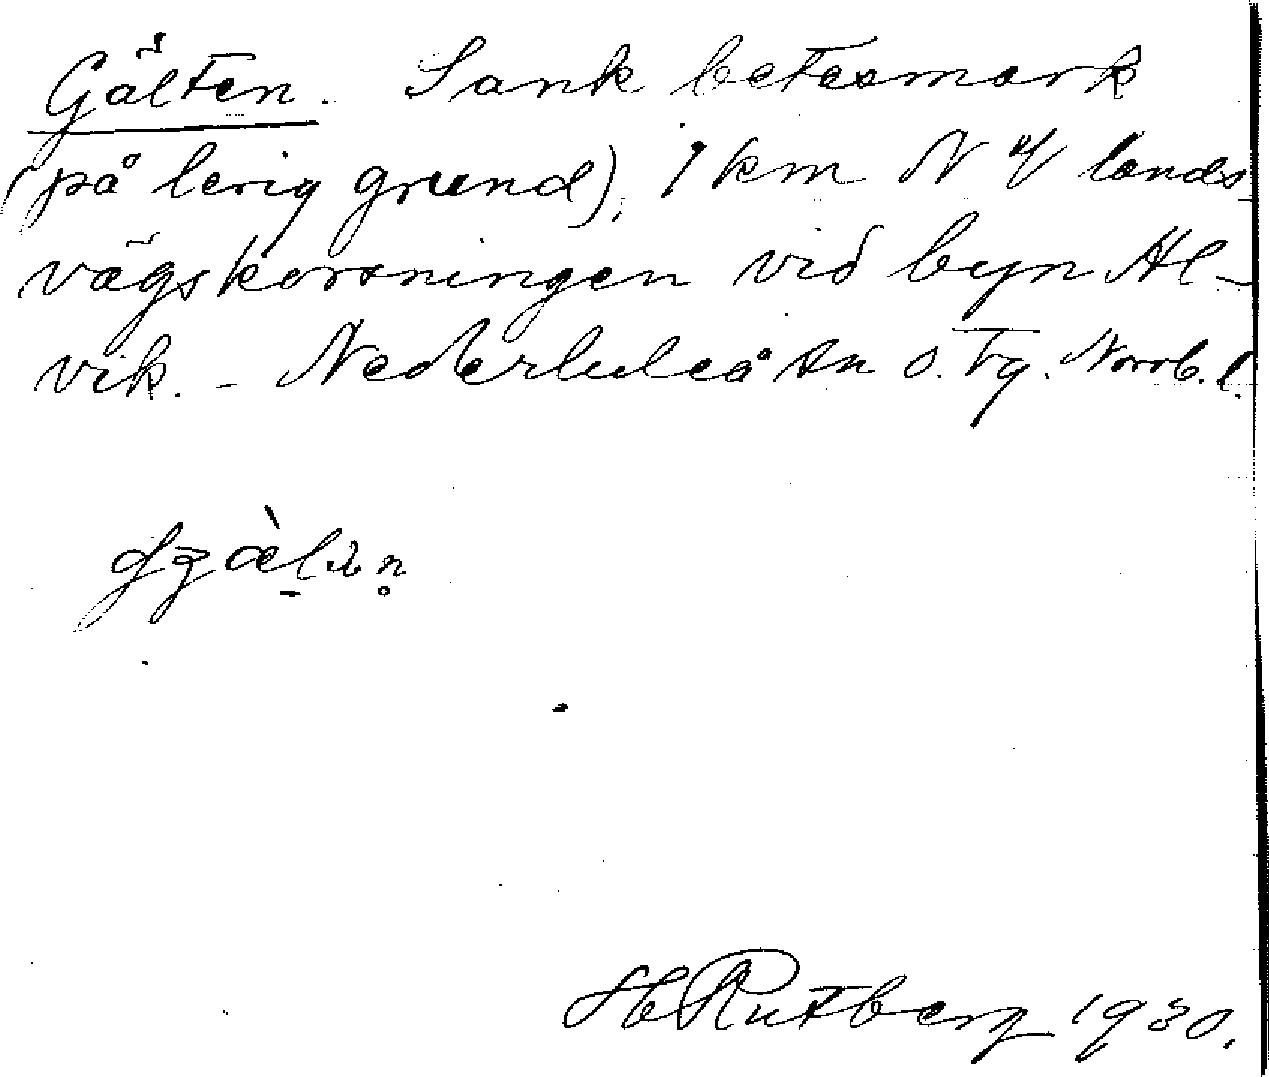 Gälten. Sank betesmark
(på lerig grund), 1 km N of lands
vägskorsningen vid byn Al-
vik. - Nederluleå sn o. tg. Norrb. l.
H Rutberg 1930.